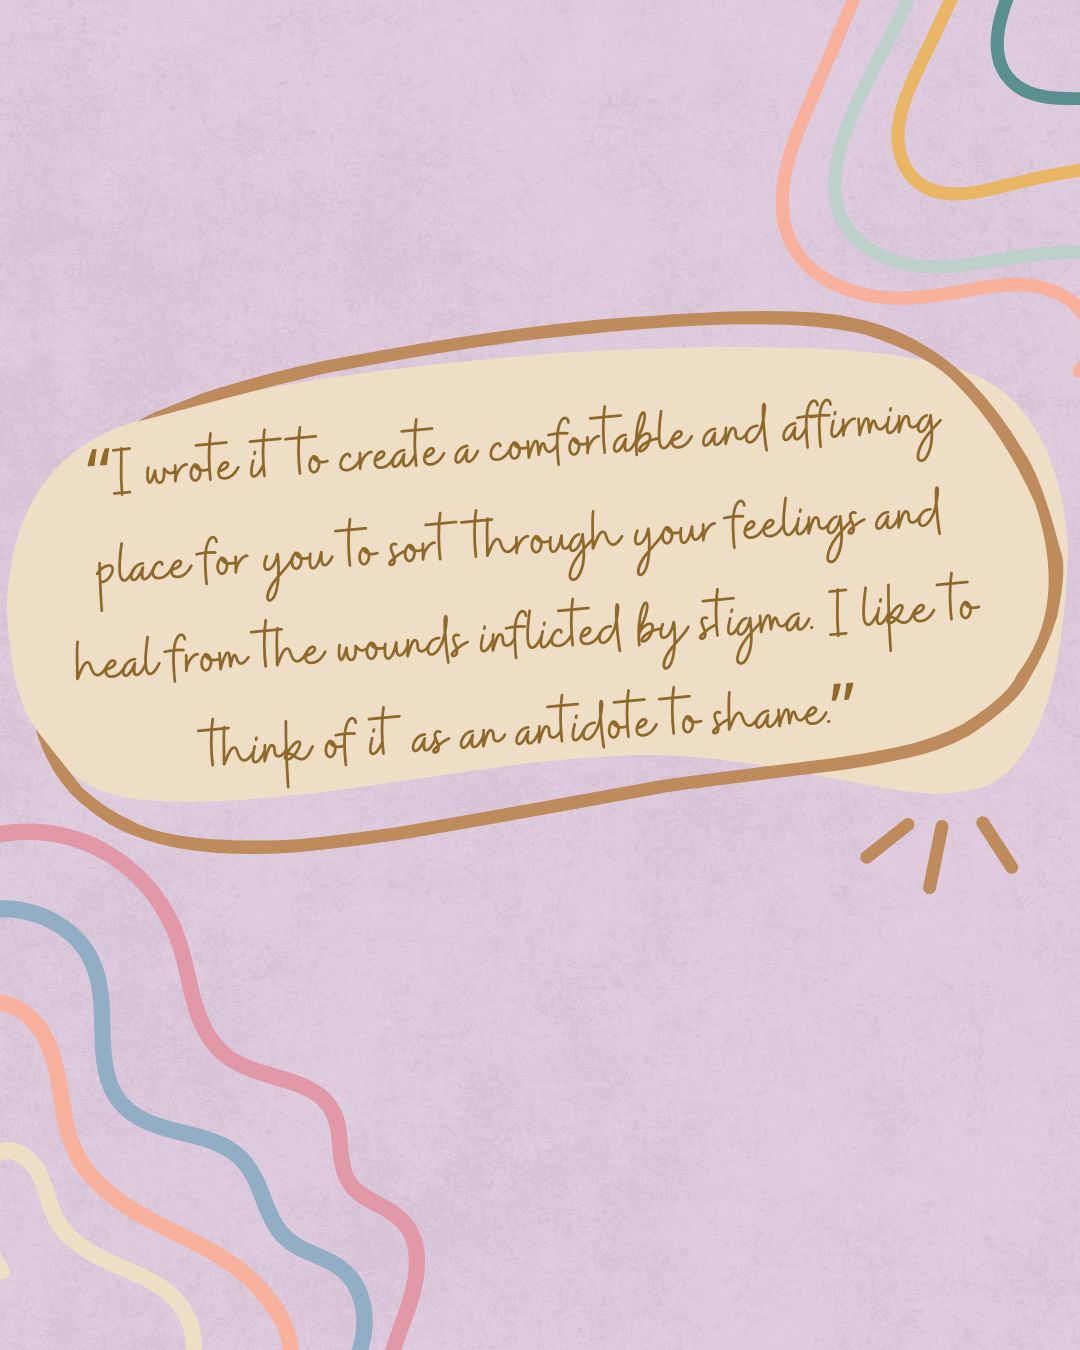 “I wrote it to create a comfortable and affirming
place for you to sort through your feelings and
heal from the wounds inflicted by stigma. I like to
think of it as an antidote to shame.”